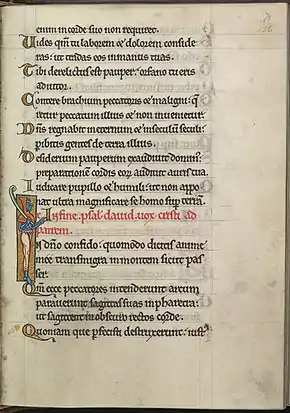 enim in corde suo non requiret.
Uides qm tu laborem & dolorem conside
ras: ut tradas eos in manus tuas.
Tibi derelictus est pauper: orfano tu eris
adiutor.
Contere brachium peccatoris & maligni: q
retur peccatum illius & non inuenietur.
Dns regnabit in eternum & in seculum seculi:
pibitis gentes de terra illius.
Desiderium pauperum exaudiuit domin':
preparationem cordis eor audiuit auris tua.
Iudicare pupillo & humili: ut non appo
nat ultra magnificare se homo sup terrā.
In fine psal dauid uox cristi ad
patrem.
In dno confido: quomodo dicitis anime
mee transmigra in montem sicut pas
ser.
Qm ecce peccatores intenderunt arcum
parauerunt sagittas suas in pharetra:
ut sagittent in obscuro rectos corde.
Quoniam que pfecisti destruxerunt: iust'